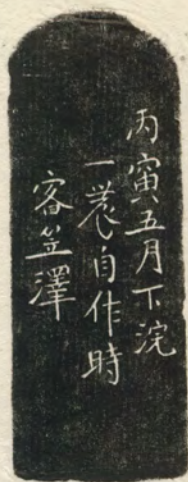 丙寅五月下浣
一農自作時
客笠澤